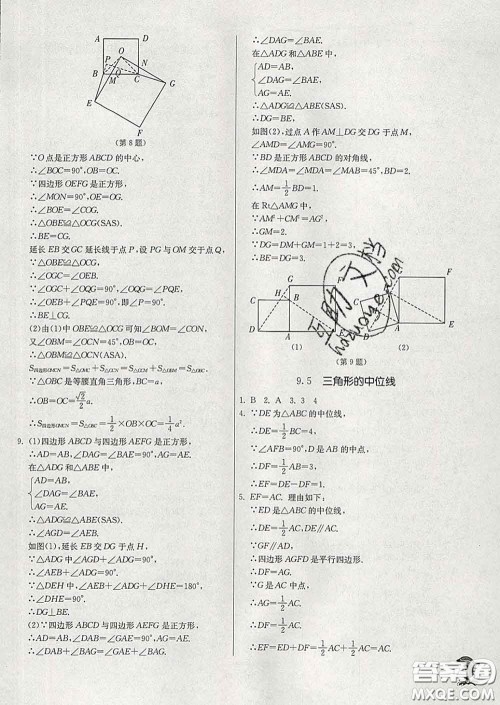 A D
O
P N
B Q C
M G
E
F
(第8题)
∵O点是正方形ABCD的中心,
∴∠BOC=90°,OB=OC.
∵四边形OEFG是正方形,
∴∠MON=90°,OE=OG.
∴∠BOE=∠COG.
∴△OBE≌△OCG(SAS).
∴BE=CG.
延长EB交GC延长线于点P,设PG与OM交于点Q,
∵△OBE≌△OCG,
∴∠OGC=∠OEB.
∵∠OGC+∠OQG=90°,∠OQG=∠PQE,
∴∠OEB+∠PQE=90°,∴∠QPE=90°.
∴BE⊥CG.
(2)由(1)中△OBE≌△OCG可知∠BOM=∠CON,
又∠OBM=∠OCN=45°,OB=OC,
∴△OBM≌△OCN(ASA).
S四边形OMCN=S△OMC+S△OCN=S△OMC+S△OBM=S△OBC.
∵△OBC是等腰直角三角形,BC=a,
∴OB=OC=√2/2 a.
∴S四边形OMCN=1/2×OB×OC=1/4 a².
9. (1)∵四边形ABCD与四边形AEFG是正方形,
∴AD=AB,∠DAG=∠BAE=90°,AG=AE.
在△ADG和△ABE中,
AD=AB,
∠DAG=∠BAE=90°,
AG=AE,
∴△ADG≌△ABE(SAS).
∴∠AGD=∠AEB.
如图(1),延长EB交DG于点H,
∵△ADG中∠AGD+∠ADG=90°,
∴∠AEB+∠ADG=90°.
∵△DEH中,∠AEB+∠ADG+∠DHE=180°,
∴∠DHE=90°.
∴DG⊥BE.
(2)∵四边形ABCD与四边形AEFG是正方形,
∴AD=AB,∠DAB=∠GAE=90°,AG=AE.
∴∠DAB+∠BAG=∠GAE+∠BAG,
∴∠DAG=∠BAE.
在△ADG和△ABE中,
AD=AB,
∠DAG=∠BAE,
AG=AE,
∴△ADG≌△ABE(SAS).
∴DG=BE.
如图(2),过点A作AM⊥DG交DG于点M,
∴∠AMD=∠AMG=90°.
∵BD是正方形ABCD的对角线,
∴∠MDA=∠MDA=∠MAB=45°,BD=2.
∴AM=1/2 BD=1.
在Rt△AMG中,
∵AM²+GM²=AG²,
∴GM=2.
∵DG=DM+GM=1+2=3,
∴BE=DG=3.
G F
H
C B
D A E
(1)
F
A E
(2)
(第9题)
9.5 三角形的中位线
1. B 2. A 3. 3 4
4. ∵DE为△ABC的中位线,
∴DE=1/2 BC=4.
∵∠AFB=90°,D是AB的中点,
∴DF=1/2 AB=3.
∴EF=DE-DF=1.
5. EF=AC. 理由如下:
∵ED是△ABC的中位线,
∴DE=1/2 AC,DE∥AC.
∵GF∥AD,
∴四边形AGFD是平行四边形.
∵G是AC的中点,
∴AG=1/2 AC.
∴DF=1/2 AC.
∴EF=ED+DF=1/2 AC+1/2 AC=AC.
答案圈
MXQE.COM